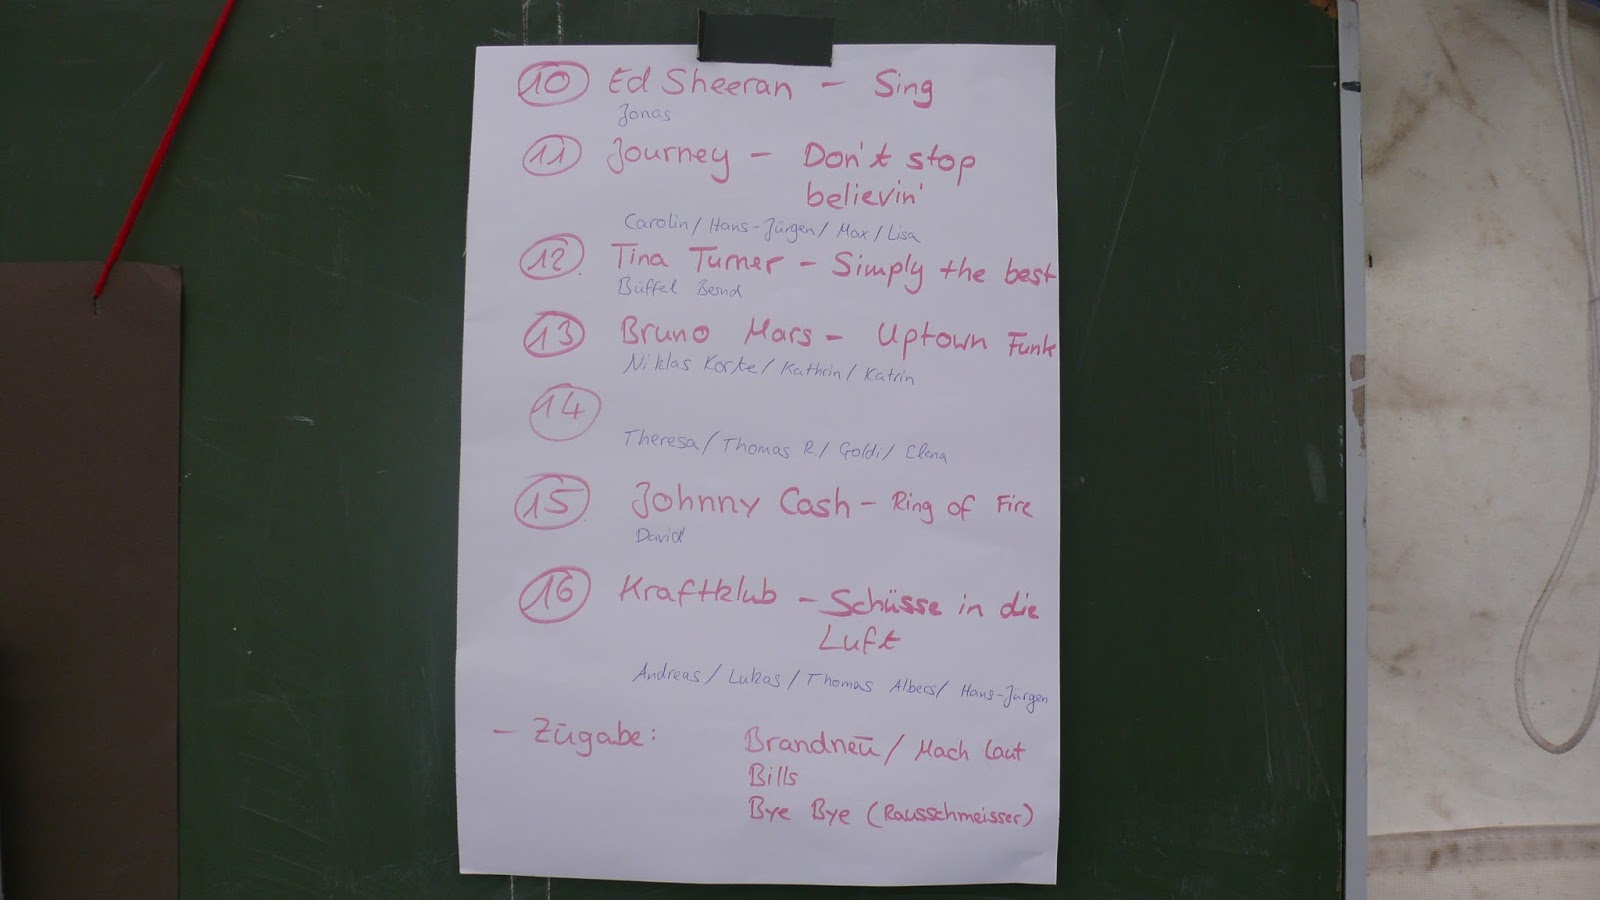 10 Ed Sheeran - Sing
Jonas
11 Journey - Don't stop
believin'
Carolin / Hans-Jürgen / Max / Lisa
12 Tina Turner - Simply the best
Büffel Bernd
13 Bruno Mars - Uptown Funk
Niklas Korte / Kathrin / Katrin
14
Theresa / Thomas R. / Goldi / Elena
15 Johnny Cash - Ring of Fire
David
16 Kraftklub - Schüsse in die
Luft
Andreas / Lukas / Thomas Albers / Hans-Jürgen
- Zūgabe: Brandneū / Mach Laut
Bills
Bye Bye (Rausschmeisser)